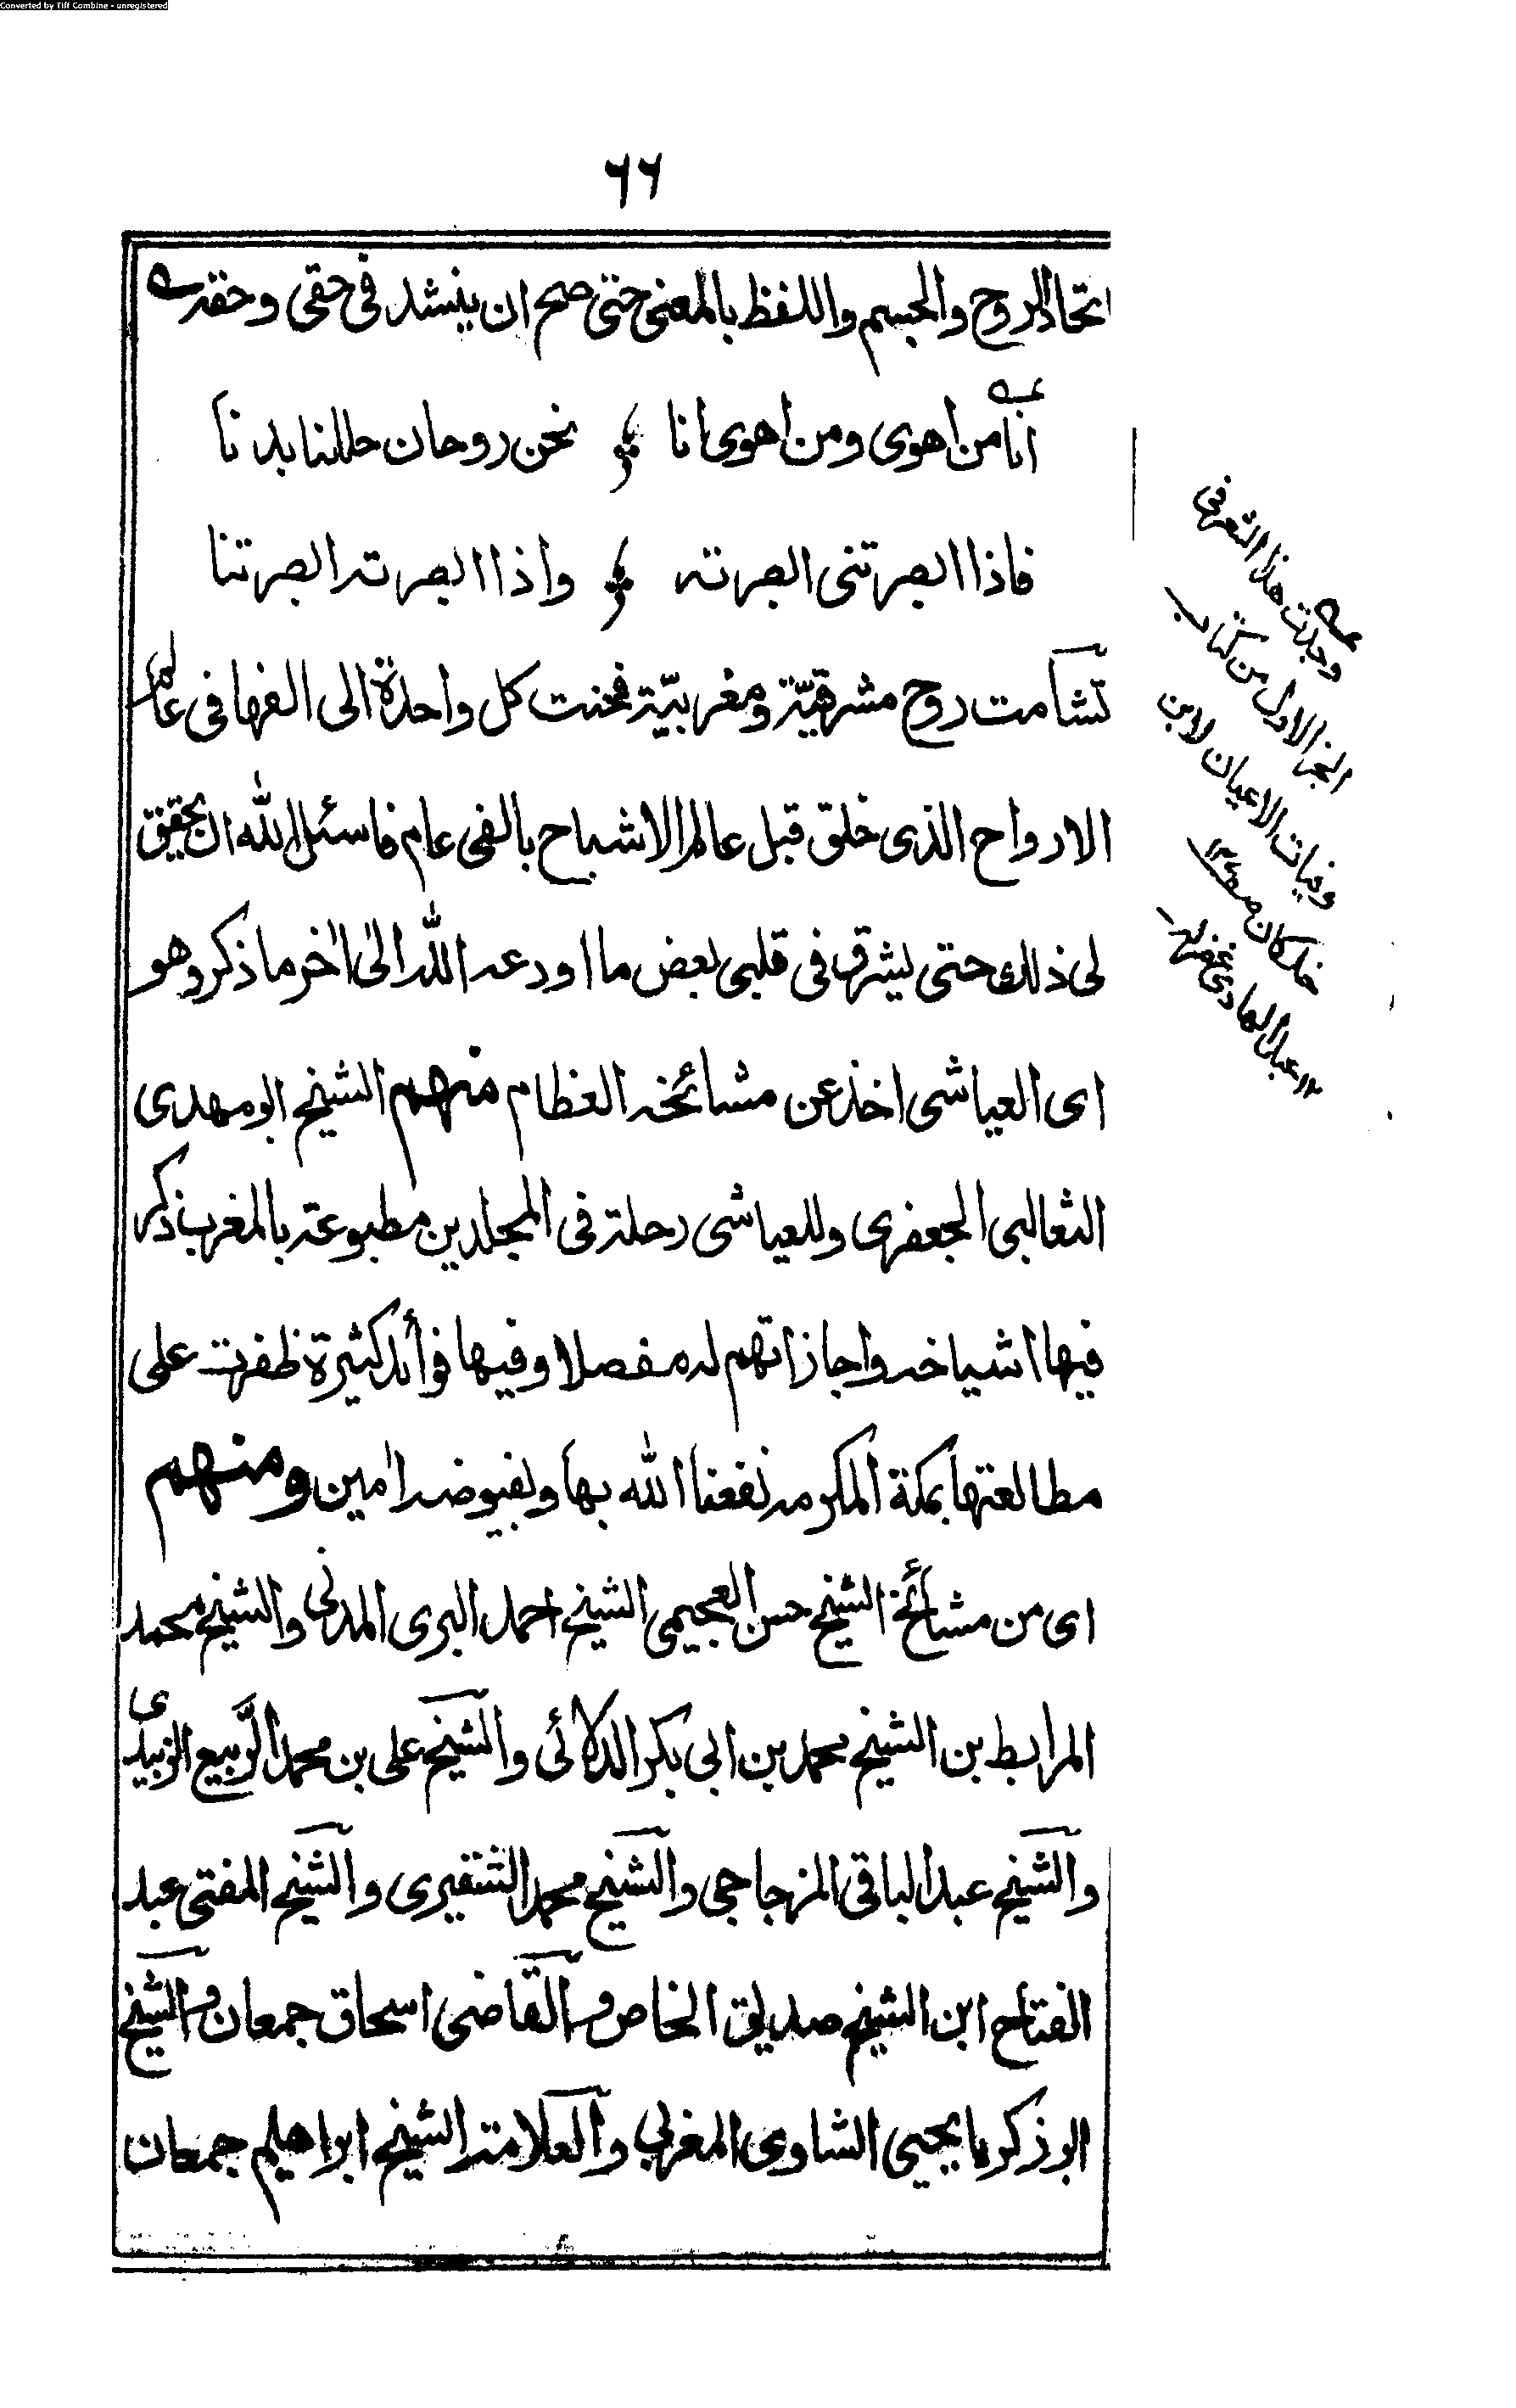 Converted by Tiff Combine - unregistered
٦٦
اتحاد الروح والجسم واللفظ بالمعنى حتى صح ان ينشد فى حقى وحقه
انا من اهوى ومن اهوى انا نحن روحان حللنا بدنا
فاذا ابصرتنى ابصرته واذا ابصرته ابصرتنا
تشآمت روح مشرقيّة ومغربيّة فحنت كل واحدة الى الفها فى عالم
الارواح الذى خلق قبل عالم الاشباح بالفى عام فاسئل الله ان يحقق
لى ذلك حتى يشرق فى قلبى بعض ما اودعه الله الى اٰخر ما ذكر وهو
اى العياشى اخذ عن مشائخه العظام منهم الشيخ ابو مهدى
الثعالبى الجعفرى وللعياشى رحلة فى المجلدين مطبوعة بالمغرب ذكر
فيها اشياخه واجازاتهم له مفصلا وفيها فوائد كثيرة ظفرت على
مطالعتها بمكة المكرمه نفعنا الله بها وبفيوضه اٰمين ومنهم
اى من مشائخ الشيخ حسن العجيمى الشيخ احمد البرى المدنى والشيخ محمد
المرابط بن الشيخ محمد بن ابى بكر الدلائى والشيخ على بن محمد الرّبيع الزبيدى
والشيخ عبد الباقى المزجاجى والشيخ محمد الشنفيرى والشيخ المفتى عبد
الفتاح ابن الشيخ صديق الخاص والقاضى اسحاق جمعان والشيخ
ابو ذكريا يحيى الشاوى المغربى والعلامة الشيخ ابراهيم جمعان
وجدت هذا الشعر فى
الجزء الاول من كتاب
وفيات الاعيان لابن
خلكان
١٢ عبد الهادى غفر له